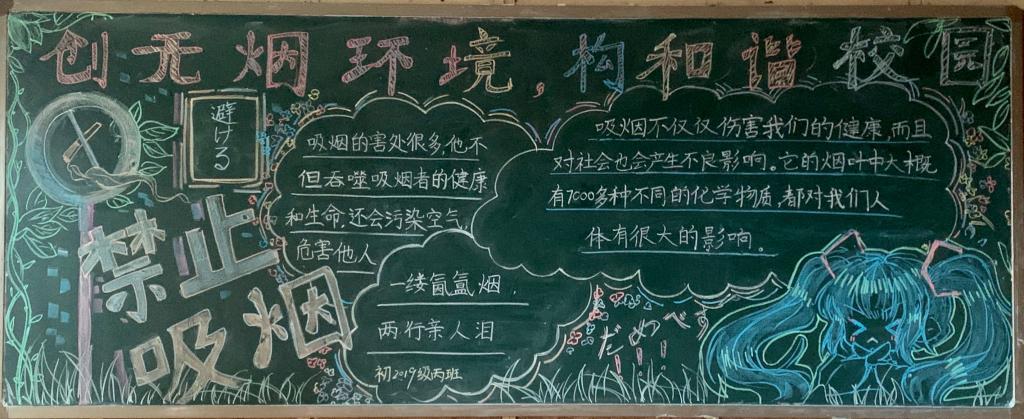 创无烟环境,构和谐校园
避ける
禁止
吸烟
吸烟的害处很多,他不
但吞噬吸烟者的健康
和生命,还会污染空气,
危害他人
一缕氤氲烟,
两行亲人泪
初2019级丙班
吸烟不仅仅伤害我们的健康,而且
对社会也会产生不良影响。它的烟叶中大概
有7000多种不同的化学物质,都对我们人
体有很大的影响。